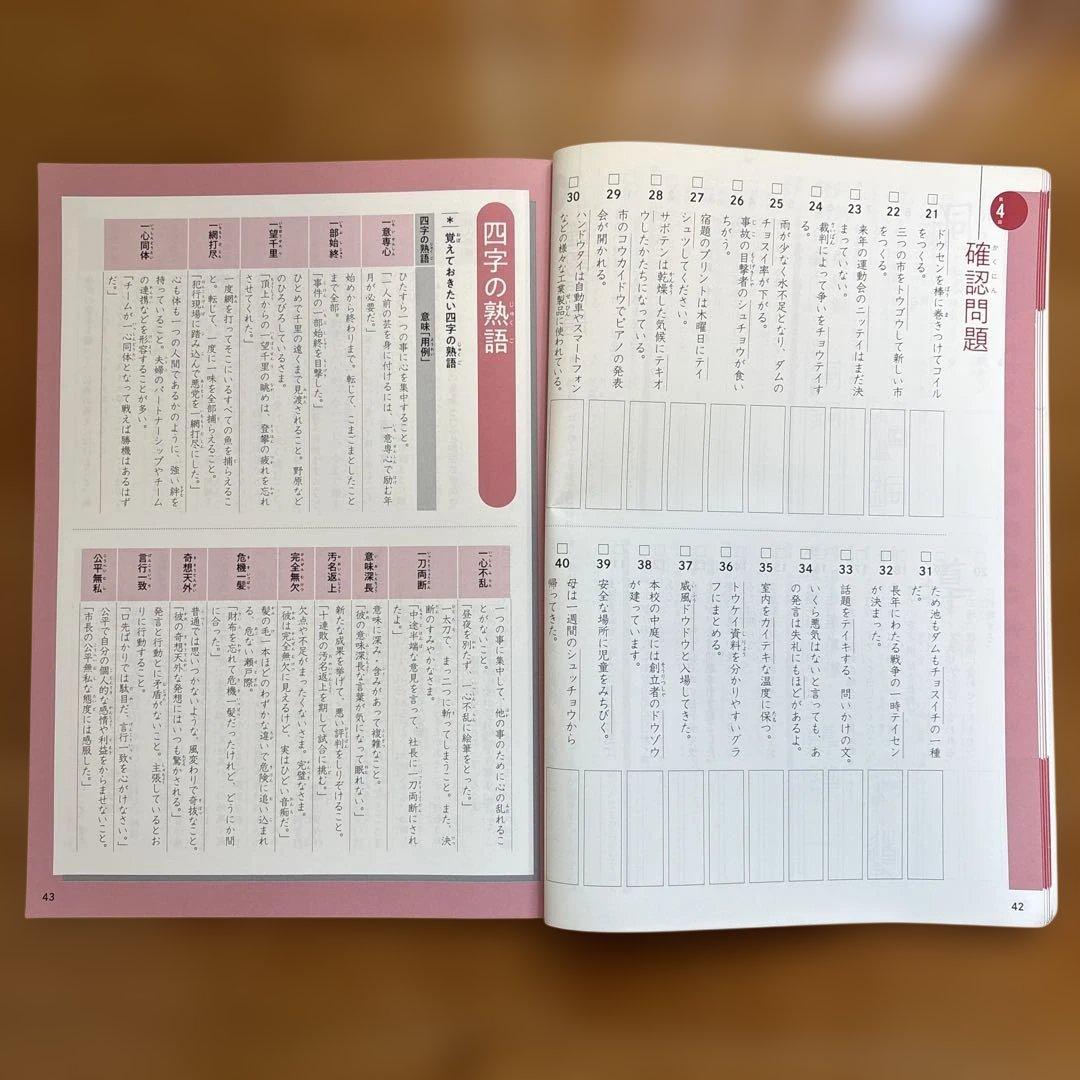 第4回
確認問題
21 ドウセンを棒に巻きつけてコイル
をつくる。
22 三つの市をトウゴウして新しい市
をつくる。
23 来年の運動会のニッテイはまだ決
まっていない。
24 裁判によって争いをチョウテイす
る。
25 雨が少なく水不足となり、ダムの
チョスイ率が下がる。
26 事故の目撃者のシュチョウが食い
ちがう。
27 宿題のプリントは木曜日にテイ
シュツしてください。
28 サボテンは乾燥した気候にテキオ
ウしたかたちになっている。
29 市のコウカイドウでピアノの発表
会が開かれる。
30 ハンドウタイは自動車やスマートフォン
などの様々な工業製品に使われている。
31 ため池もダムもチョスイチの一種
だ。
32 長年にわたる戦争の一時テイセン
が決まった。
33 話題をテイキする、問いかけの文。
34 いくら悪気はないと言っても、あ
の発言は失礼にもほどがあるよ。
35 室内をカイテキな温度に保つ。
36 トウケイ資料を分かりやすいグラ
フにまとめる。
37 威風ドウドウと入場してきた。
38 本校の中庭には創立者のドウゾウ
が建っています。
39 安全な場所に児童をみちびく。
40 母は一週間のシュッチョウから
帰ってきた。
42
四字の熟語
*覚えておきたい四字の熟語
四字の熟語
意味「用例」
一意専心
ひたすら一つの事に心を集中すること。
「一人前の芸を身に付けるには、一意専心で励む年
月が必要だ。」
一部始終
始めから終わりまで。転じて、こまごまとしたこと
まで全部。
「事件の一部始終を目撃した。」
一望千里
ひとめで千里の遠くまで見渡されること。野原など
のひろびろしているさま。
「頂上からの一望千里の眺めは、登攀の疲れを忘れ
させてくれた。」
一網打尽
一度網を打ってそこにいるすべての魚を捕らえるこ
と。転じて、一度に一味を全部捕らえること。
「犯行現場に踏み込んで悪党を一網打尽にした。」
一心同体
心も体も一つの人間であるかのように、強い絆を
持っていること。夫婦のパートナーシップやチーム
の連携などを形容することが多い。
「チームが一心同体となって戦えば勝機はあるはず
だ。」
一心不乱
一つの事に集中して、他の事のために心の乱れるこ
とがないこと。
「昼夜を別たず、一心不乱に絵筆をとった。」
一刀両断
一太刀で、まっ二つに斬ってしまうこと。また、決
断のすみやかなさま。
「中途半端な意見を言って、社長に一刀両断にされ
たよ。」
意味深長
意味に深み・含みがあって複雑なこと。
「彼の意味深長な言葉が気になって眠れない。」
汚名返上
新たな成果を挙げて、悪い評判をしりぞけること。
「十連敗の汚名返上を期して試合に挑む。」
完全無欠
欠点や不足がまったくないさま。完璧なさま。
「彼は完全無欠に見えるけど、実はひどい音痴だ。」
危機一髪
髪の毛一本ほどのわずかな違いで危険に追い込まれ
る、危ない瀬戸際。
「財布を忘れて危機一髪だったけれど、どうにか間
に合った。」
奇想天外
普通では思いつかないような、風変わりで奇抜なこと。
「彼の奇想天外な発想にはいつも驚かされる。」
言行一致
発言と行動とに矛盾がないこと。主張しているとお
りに行動すること。
「口先ばかりでは駄目だ、言行一致を心がけなさい。」
公平無私
公平で自分の個人的な感情や利益をからませないこと。
「市長の公平無私な態度には感服した。」
43